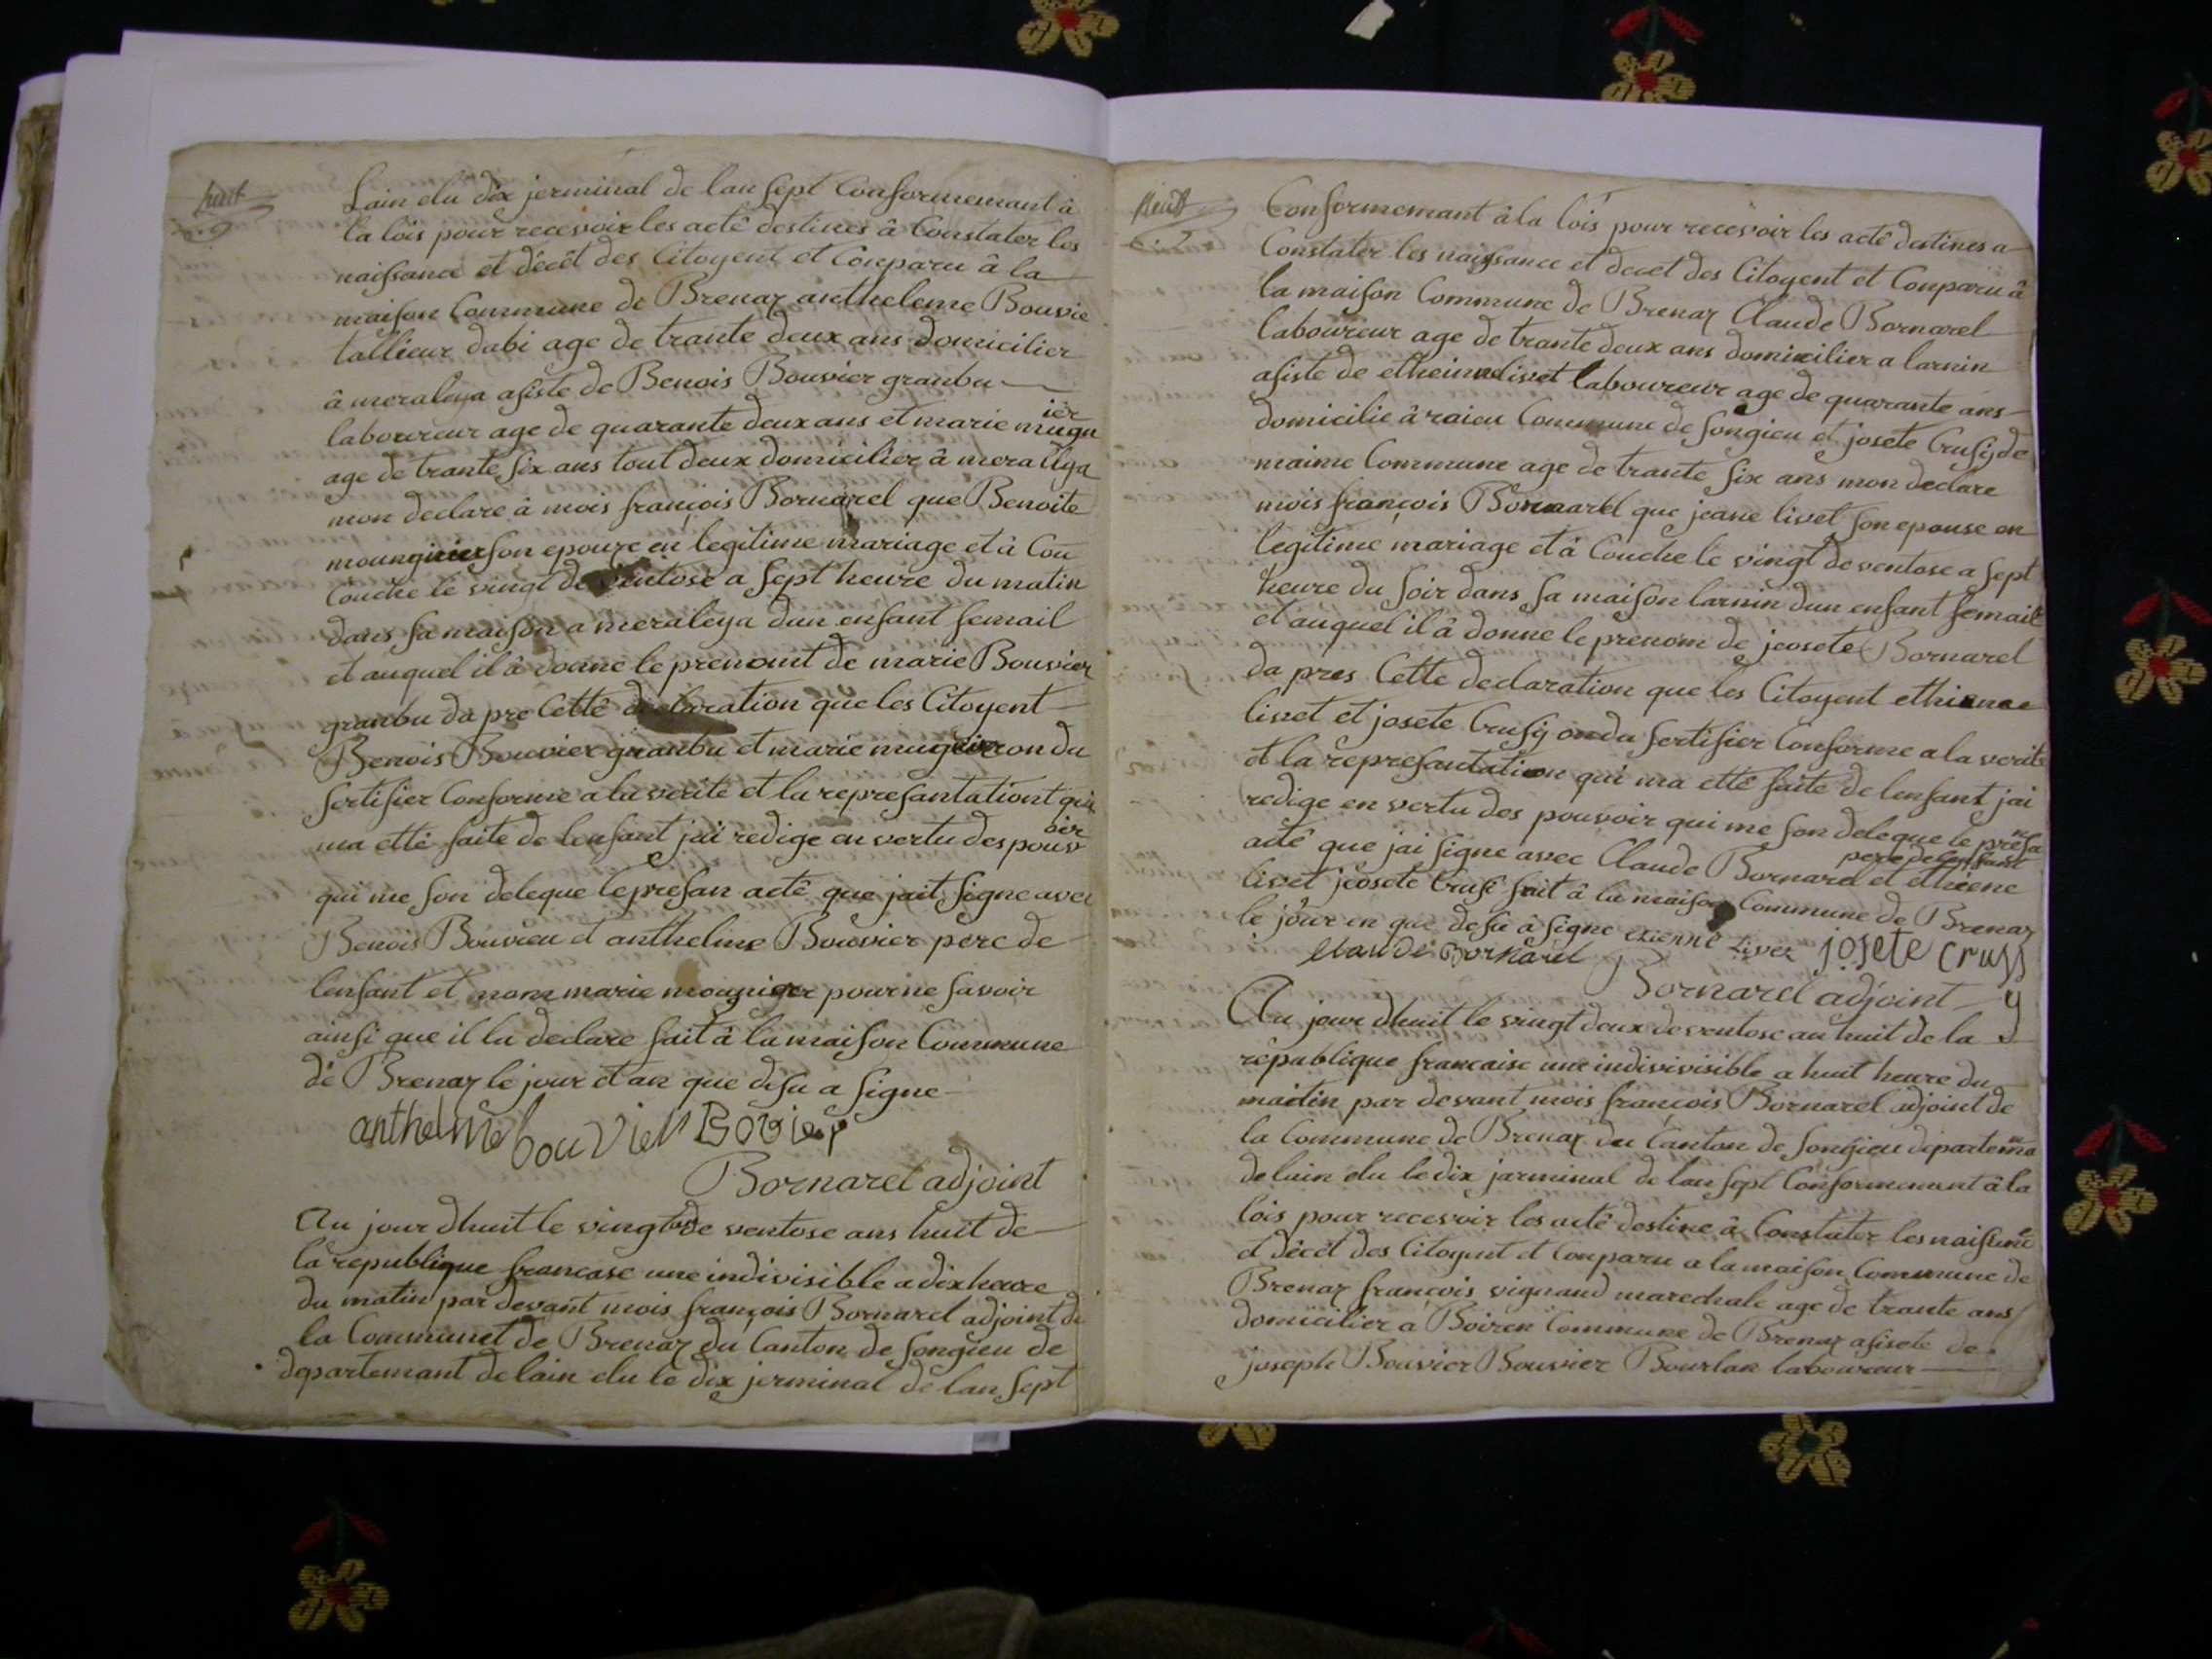 huit
Lain elu dix jerminal de lan sept Conformemant à
la lois pour recevoir les actê destines à Constater les
naissance et dècêt des Citoyent et Conparu à la
maison Commune de Brenaz antheleme Bouvie
tallieur dabi age de trante deux ans domicilier
à meraleya asiste de Benois Bouvier granbu
laboureur age de quarante deux ans et marie mugn ier
age de trante six ans tout deux domicilier à meraleya
mon declare à mois françois Bornarel que Benoite
mougnier son epouze en legitime mariage et à Cou
Couche le vingt de ventose a sept heure du matin
dans sa maison a meraleya dun enfant femail
et auquel il à donne le prenomt de marie Bouvier
granbu da pre Cettê declaration que les Citoyent
Benois Bouvier granbu et marie mugnier on du
sertifier Conforme a la verite et la represantationt qui
ma ettê faite de lenfant jai redige en vertu des pouv oir
qui me son deleque le presan actê que jait signe avec
Benois Bouvieu et anthelme Bouvier pere de
lenfant et nom marie mougnier pour ne savoir
ainsi que il la declare fait à la maison Commune
de Brenaz le jour et an que desu a signe
anthelme bouvier Bovier
Bornarel adjoint
Au jour dhuit le vingt de ventose ans huit de
la republique francase une indivisible a dix heure
du matin par devant mois françois Bornarel adjoint de
la Communet de Brenaz du Canton de songieu de
departemant de lain elu le dix jerminal de lan sept
neuf
Conformemant à la lois pour recevoir les actê destines a
Constater les naissance et decet des Citoyent et Conparu à
la maison Commune de Brenaz Claude Bornarel
laboureur age de trante deux ans domicilier a larnin
asiste de etheine livet laboureur age de quarante ans
domicilie à raieu Commune de songieu et josete Crusy de
maime Commune age de trante six ans mon declare
mois françois Bornarel que jeane livet son epouse en
legitime mariage et à Couche le vingt de ventose a sept
heure du soir dans sa maison larnin dun enfant femaile
et auquel il à donne le prenom de jeosete Bornarel
da pres Cette declaration que les Citoyent ethienne
livet et josete Crusy on du sertifier Conforme a la verite
et la represantation qui ma ettê faite de lenfant jai
redige en vertu des pouvoir qui me son deleque le presa n
actê que jai signe avec Claude Bornarel pere de lenfant et etheiene
livet jeosete Crusi fait à la maison Commune de Brenaz
le jour en que desu à signe etienne Livet josete crusy
claude Bornarel
Bornarel adjoint
Au jour dhuit le vingt deux de ventose an huit de la
republique francaise une indivivisible a huit heure du
maitin par devant mois françois Bornarel adjoint de
la Commune de Brenaz du Canton de songieu departema n
de lain elu le dix jarminal de lan sept Conformemant à la
lois pour recevoir les actê destine à Constater les naissance
et dècêt des Citoyent et Conparu a la maison Commune de
Brenaz françois vignand marechale age de trante ans
domicilier a Boiren Commune de Brenaz asisete de
joseph Bouvier Bouvier Bourlan laboureur